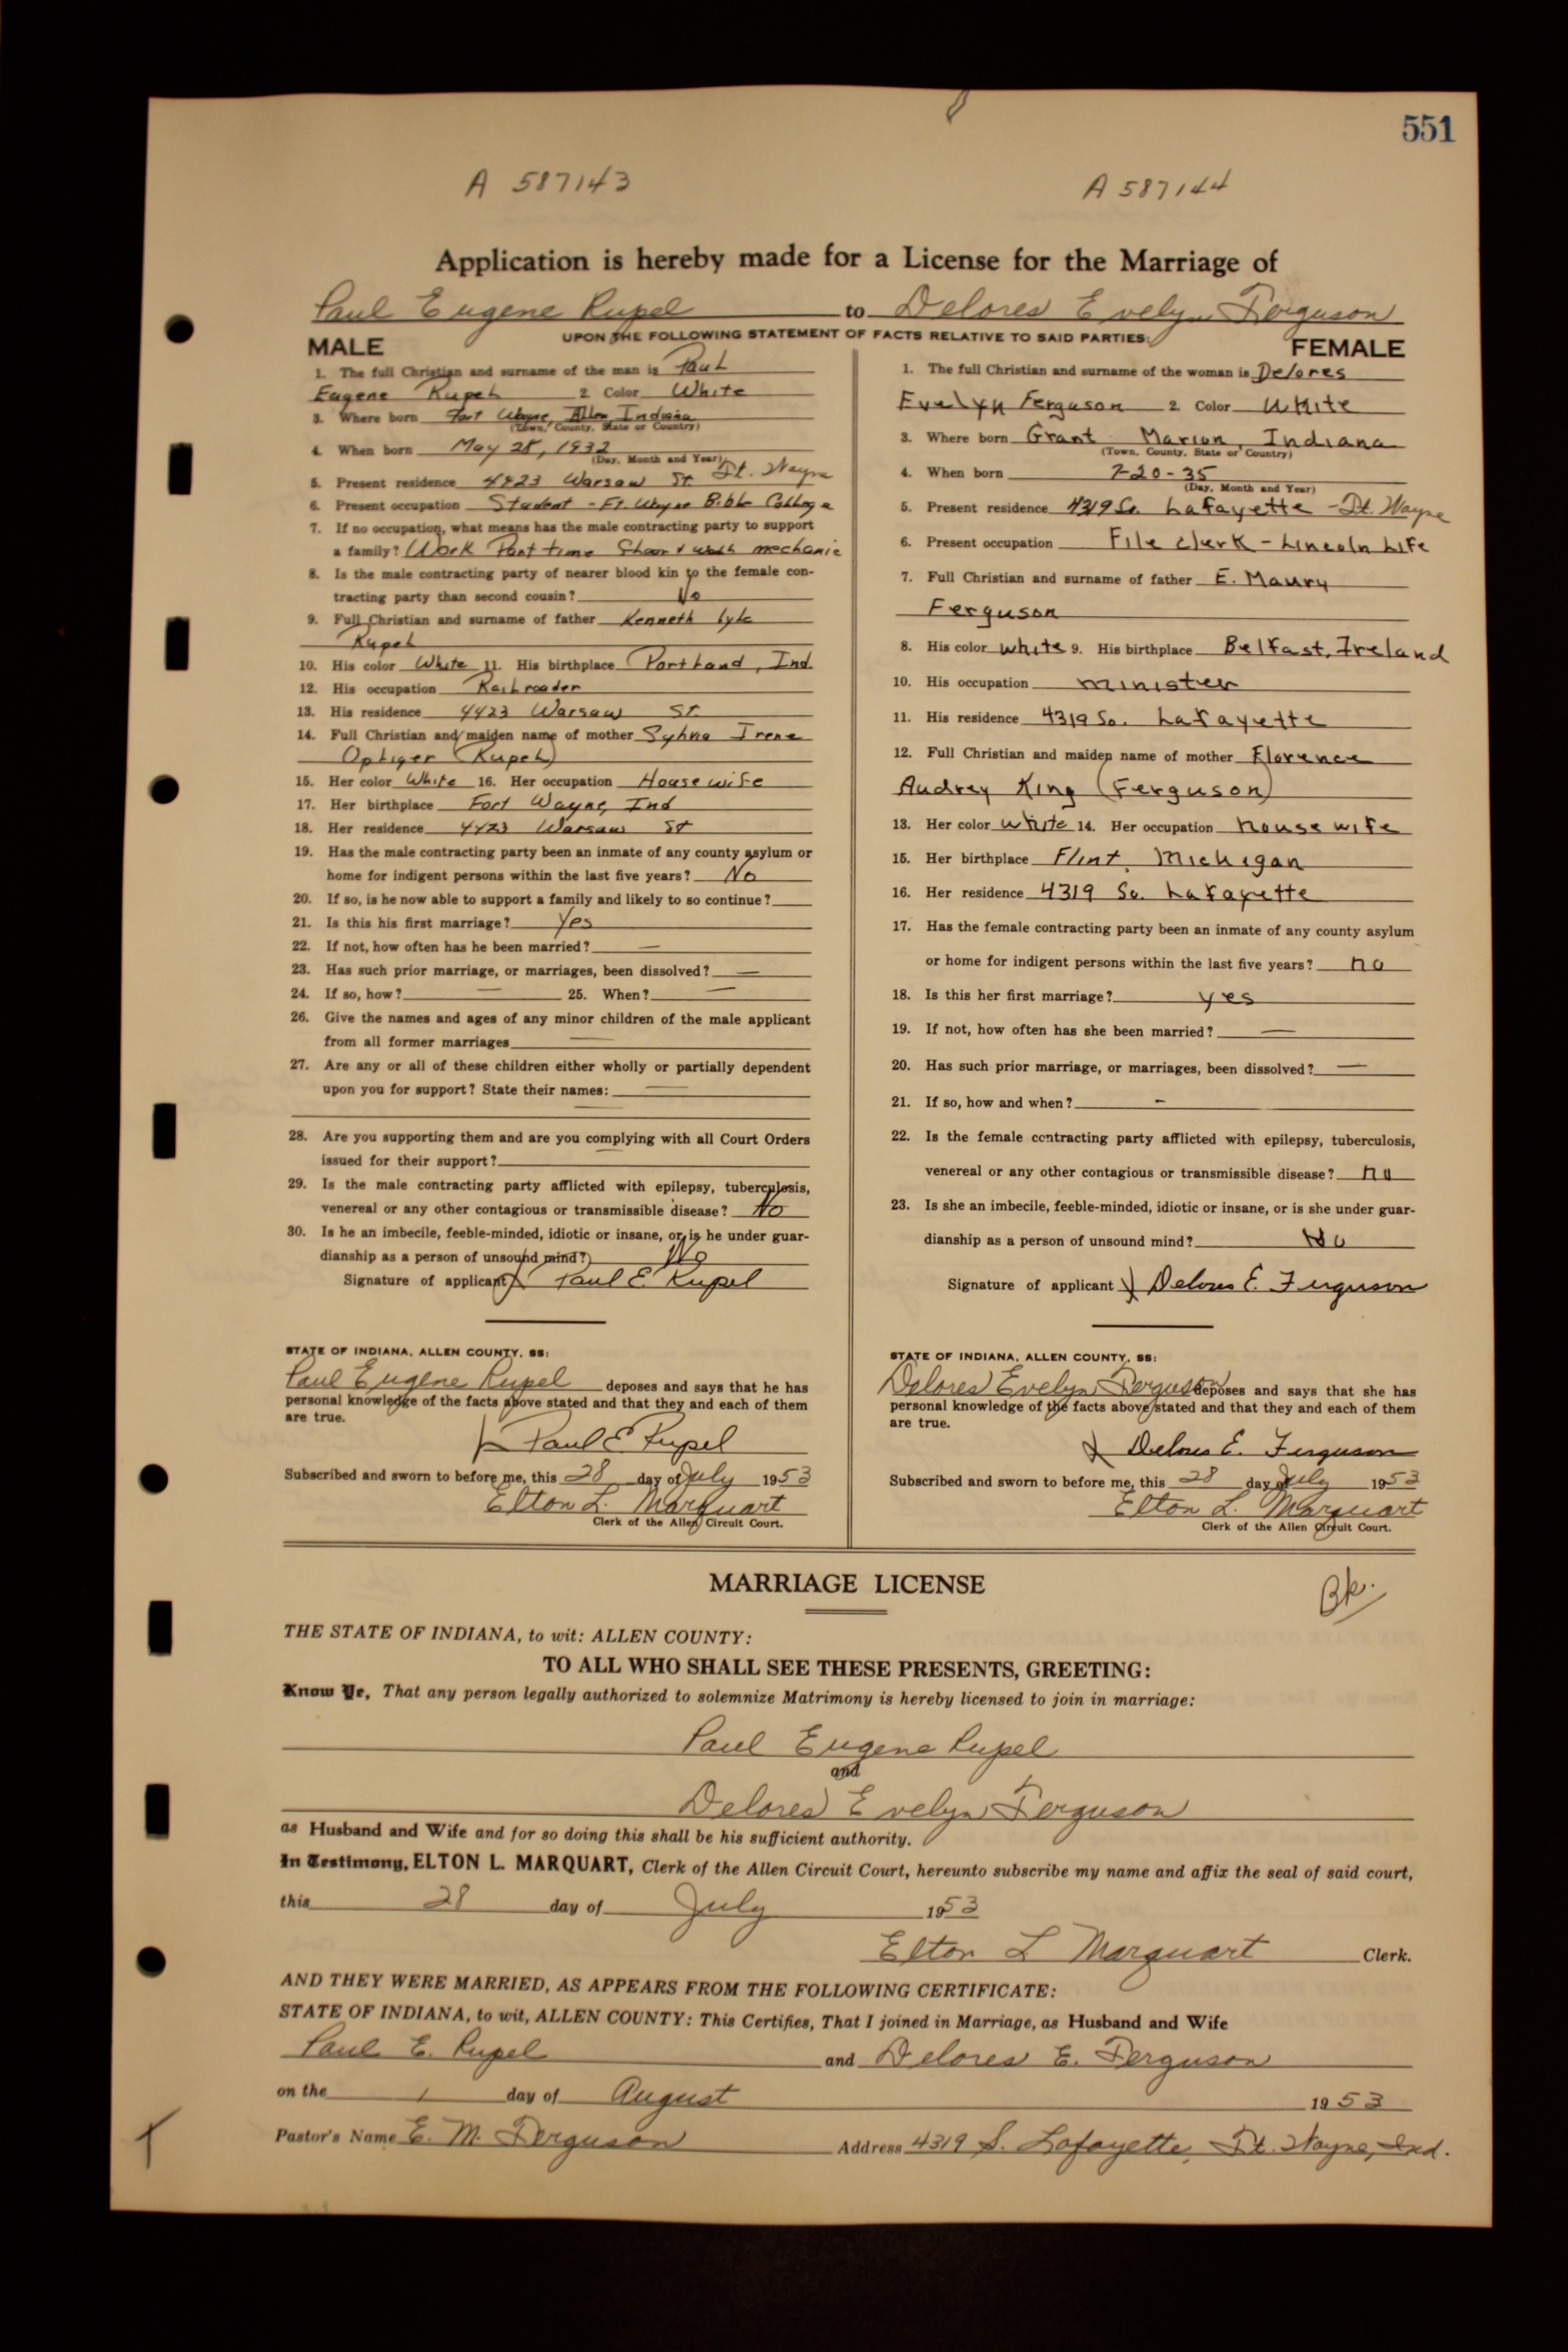 551
A 587143
A 587144
Application is hereby made for a License for the Marriage of
Paul Eugene Rupel to Delores Evelyn Ferguson
UPON THE FOLLOWING STATEMENT OF FACTS RELATIVE TO SAID PARTIES:
MALE
1. The full Christian and surname of the man is Paul
Eugene Rupel 2 Color White
3. Where born Fort Wayne, Allen Indiana
(Town, County, State or Country)
4. When born May 28, 1932
(Day, Month and Year)
5. Present residence 4423 Warsaw St Ft. Wayne
6. Present occupation Student - Ft. Wayne Bible College
7. If no occupation, what means has the male contracting party to support
a family? Work Part time mechanic
8. Is the male contracting party of nearer blood kin to the female con-
tracting party than second cousin? No
9. Full Christian and surname of father Kenneth Lyle
Rupel
10. His color White 11. His birthplace Portland, Ind
12. His occupation Railroader
13. His residence 4423 Warsaw St.
14. Full Christian and maiden name of mother Sylvna Irene
Opliger (Rupel)
15. Her color White 16. Her occupation Housewife
17. Her birthplace Fort Wayne, Ind
18. Her residence 4423 Warsaw St
19. Has the male contracting party been an inmate of any county asylum or
home for indigent persons within the last five years? No
20. If so, is he now able to support a family and likely to so continue?
21. Is this his first marriage? Yes
22. If not, how often has he been married? —
23. Has such prior marriage, or marriages, been dissolved? —
24. If so, how? — 25. When? —
26. Give the names and ages of any minor children of the male applicant
from all former marriages —
27. Are any or all of these children either wholly or partially dependent
upon you for support? State their names: —
28. Are you supporting them and are you complying with all Court Orders
issued for their support?
29. Is the male contracting party afflicted with epilepsy, tuberculosis,
venereal or any other contagious or transmissible disease? No
30. Is he an imbecile, feeble-minded, idiotic or insane, or is he under guar-
dianship as a person of unsound mind? No
Signature of applicant Paul E. Rupel
STATE OF INDIANA, ALLEN COUNTY, SS:
Paul Eugene Rupel deposes and says that he has
personal knowledge of the facts above stated and that they and each of them
are true.
Paul E. Rupel
Subscribed and sworn to before me, this 28 day of July 1953
Elton L. Marquart
Clerk of the Allen Circuit Court.
FEMALE
1. The full Christian and surname of the woman is Delores
Evelyn Ferguson 2 Color White
3. Where born Grant Marion, Indiana
(Town, County, State or Country)
4. When born 7-20-35
(Day, Month and Year)
5. Present residence 4319 So. Lafayette - Ft. Wayne
6. Present occupation File clerk - Lincoln Life
7. Full Christian and surname of father E. Maury
Ferguson
8. His color white 9. His birthplace Belfast, Ireland
10. His occupation minister
11. His residence 4319 So. Lafayette
12. Full Christian and maiden name of mother Florence
Audrey King (Ferguson)
13. Her color white 14. Her occupation housewife
15. Her birthplace Flint, Michigan
16. Her residence 4319 So. Lafayette
17. Has the female contracting party been an inmate of any county asylum
or home for indigent persons within the last five years? no
18. Is this her first marriage? yes
19. If not, how often has she been married? —
20. Has such prior marriage, or marriages, been dissolved? —
21. If so, how and when? -
22. Is the female contracting party afflicted with epilepsy, tuberculosis,
venereal or any other contagious or transmissible disease? no
23. Is she an imbecile, feeble-minded, idiotic or insane, or is she under guar-
dianship as a person of unsound mind? No
Signature of applicant Delores E. Ferguson
STATE OF INDIANA, ALLEN COUNTY, SS:
Delores Evelyn Ferguson deposes and says that she has
personal knowledge of the facts above stated and that they and each of them
are true.
Delores E. Ferguson
Subscribed and sworn to before me, this 28 day of July 1953
Elton L. Marquart
Clerk of the Allen Circuit Court.
MARRIAGE LICENSE
THE STATE OF INDIANA, to wit: ALLEN COUNTY:
TO ALL WHO SHALL SEE THESE PRESENTS, GREETING:
Know Ye, That any person legally authorized to solemnize Matrimony is hereby licensed to join in marriage:
Paul Eugene Rupel
and
Delores Evelyn Ferguson
as Husband and Wife and for so doing this shall be his sufficient authority.
In Testimony, ELTON L. MARQUART, Clerk of the Allen Circuit Court, hereunto subscribe my name and affix the seal of said court,
this 28 day of July 1953
Elton L Marquart Clerk.
AND THEY WERE MARRIED, AS APPEARS FROM THE FOLLOWING CERTIFICATE:
STATE OF INDIANA, to wit, ALLEN COUNTY: This Certifies, That I joined in Marriage, as Husband and Wife
Paul E. Rupel and Delores E. Ferguson
on the 1 day of August 1953
Pastor's Name E. M. Ferguson Address 4319 S. Lafayette, Ft. Wayne, Ind.